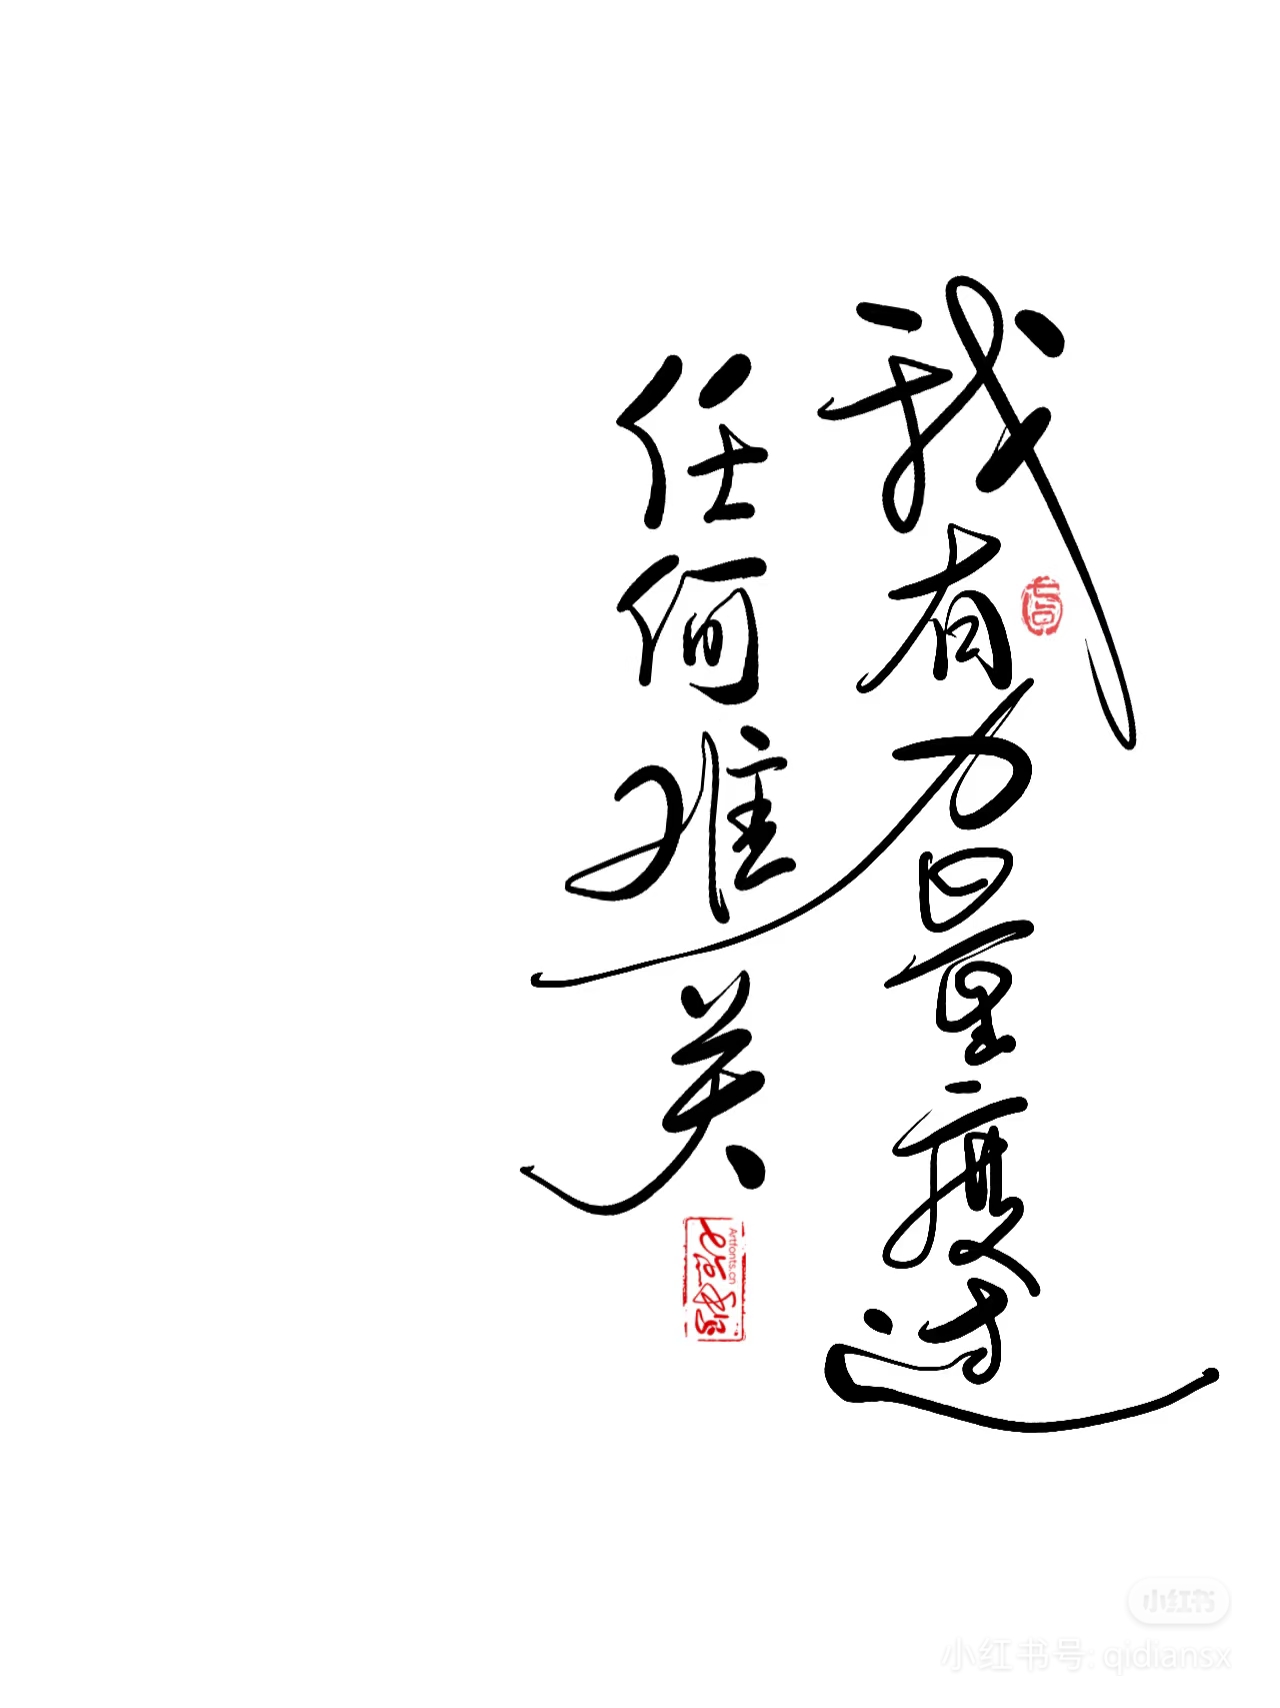 我有力量度过
任何难关
Artfonts.cn
小红书
小红书号: qidiansx